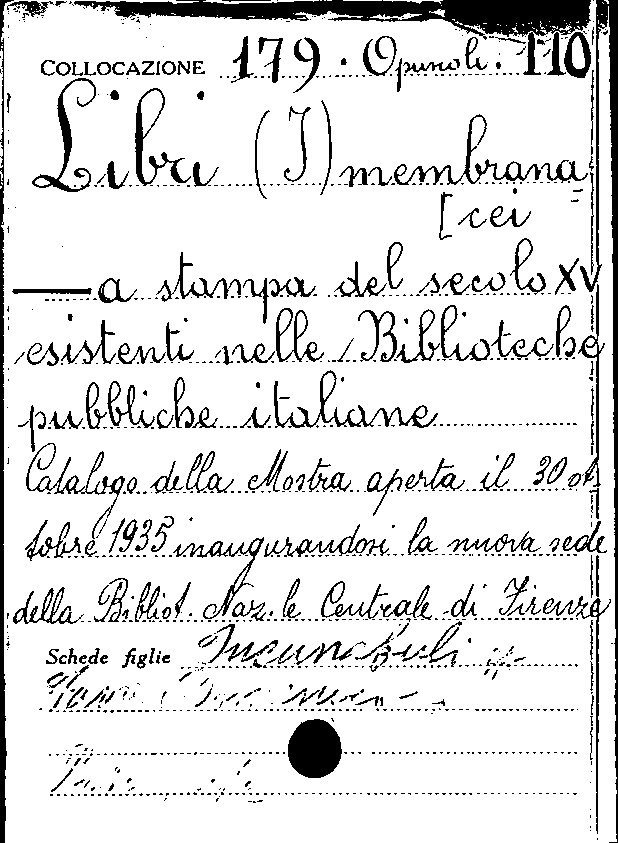 COLLOCAZIONE 179 . Opuscoli. 110
Libri (I) membrana=
[cei
— a stampa del secolo XV
esistenti nelle Biblioteche
pubbliche italiane
Catalogo della Mostra aperta il 30 ot
tobre 1935 inaugurandosi la nuova sede
della Bibliot. Naz.le Centrale di Firenze
Schede figlie Incunabuli